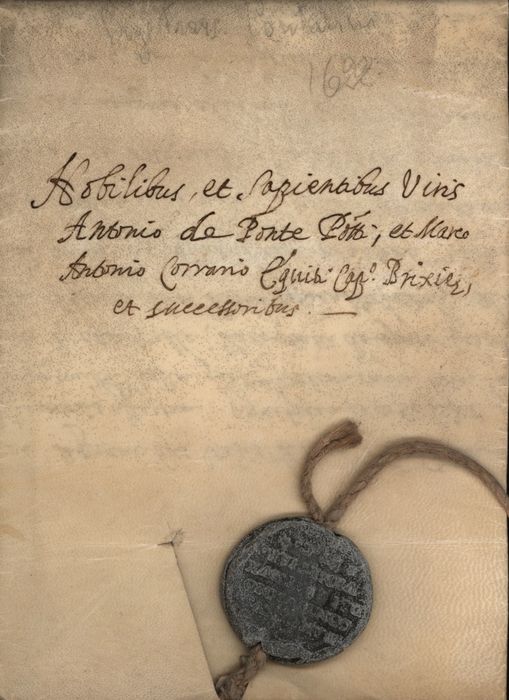 1622
Nobilibus, et Sapientibus Viris
Antonio de Ponte Pótti, et Marco
Antonio Corrario Equiti Capº. Brixię,
et successoribus. —